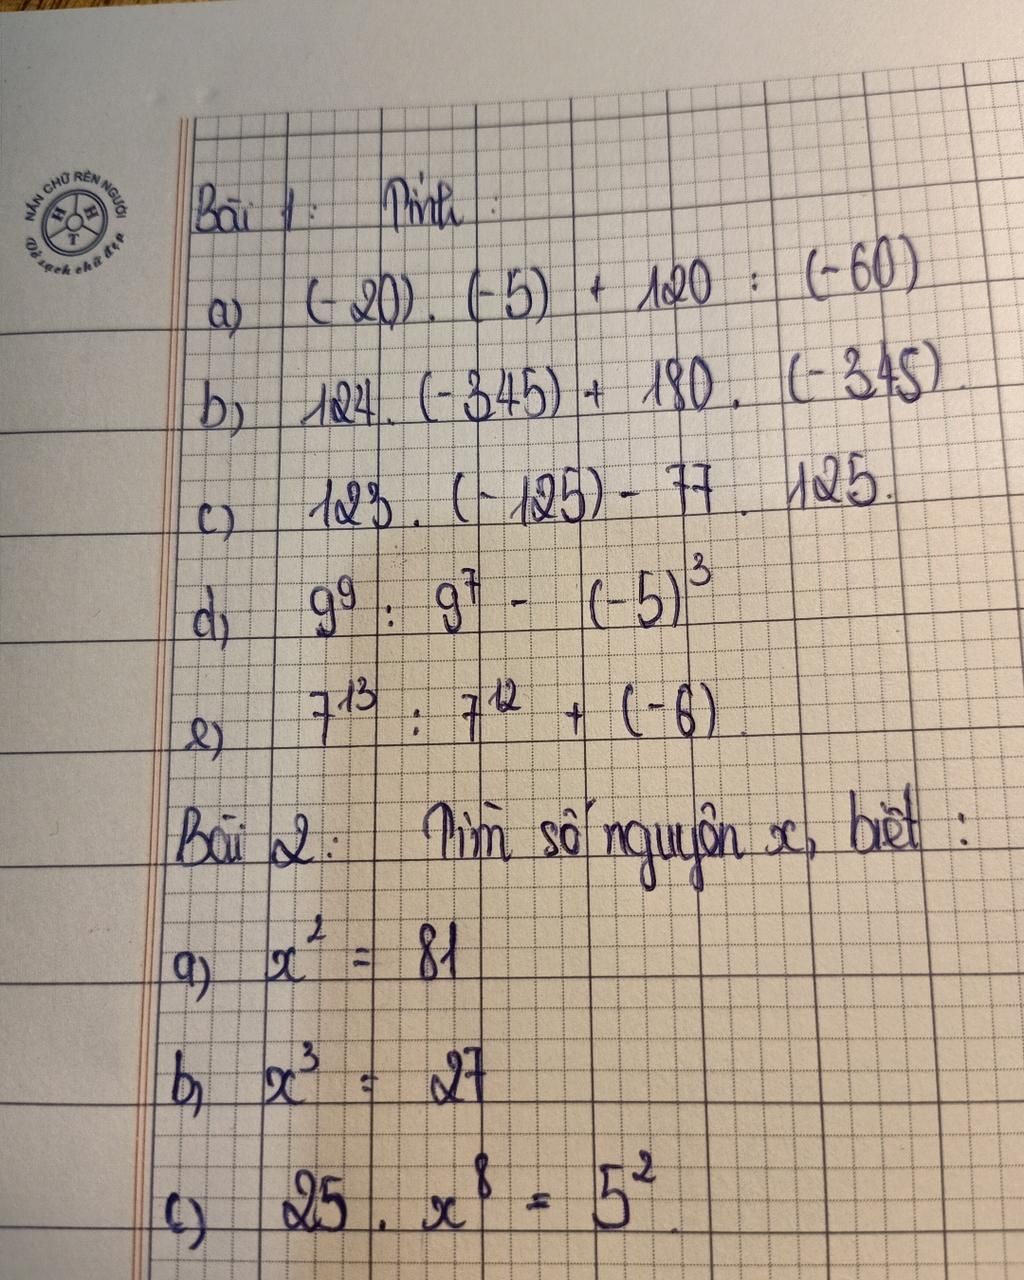 NẮN CHỮ RÈN NGƯỜI
H H
T
Để sạch chữ đẹp
Bài 1: Tính:
a) (-20). (-5) + 120 : (-60)
b) 124. (-345) + 180. (-345).
c) 123. (-125) - 77. 125.
d) 9⁹ : 9⁷ - (-5)³
e) 7¹³ : 7¹² + (-6).
Bài 2: Tìm số nguyên x, biết:
a) x² = 81
b) x³ = 27
c) 25. x⁸ = 5².